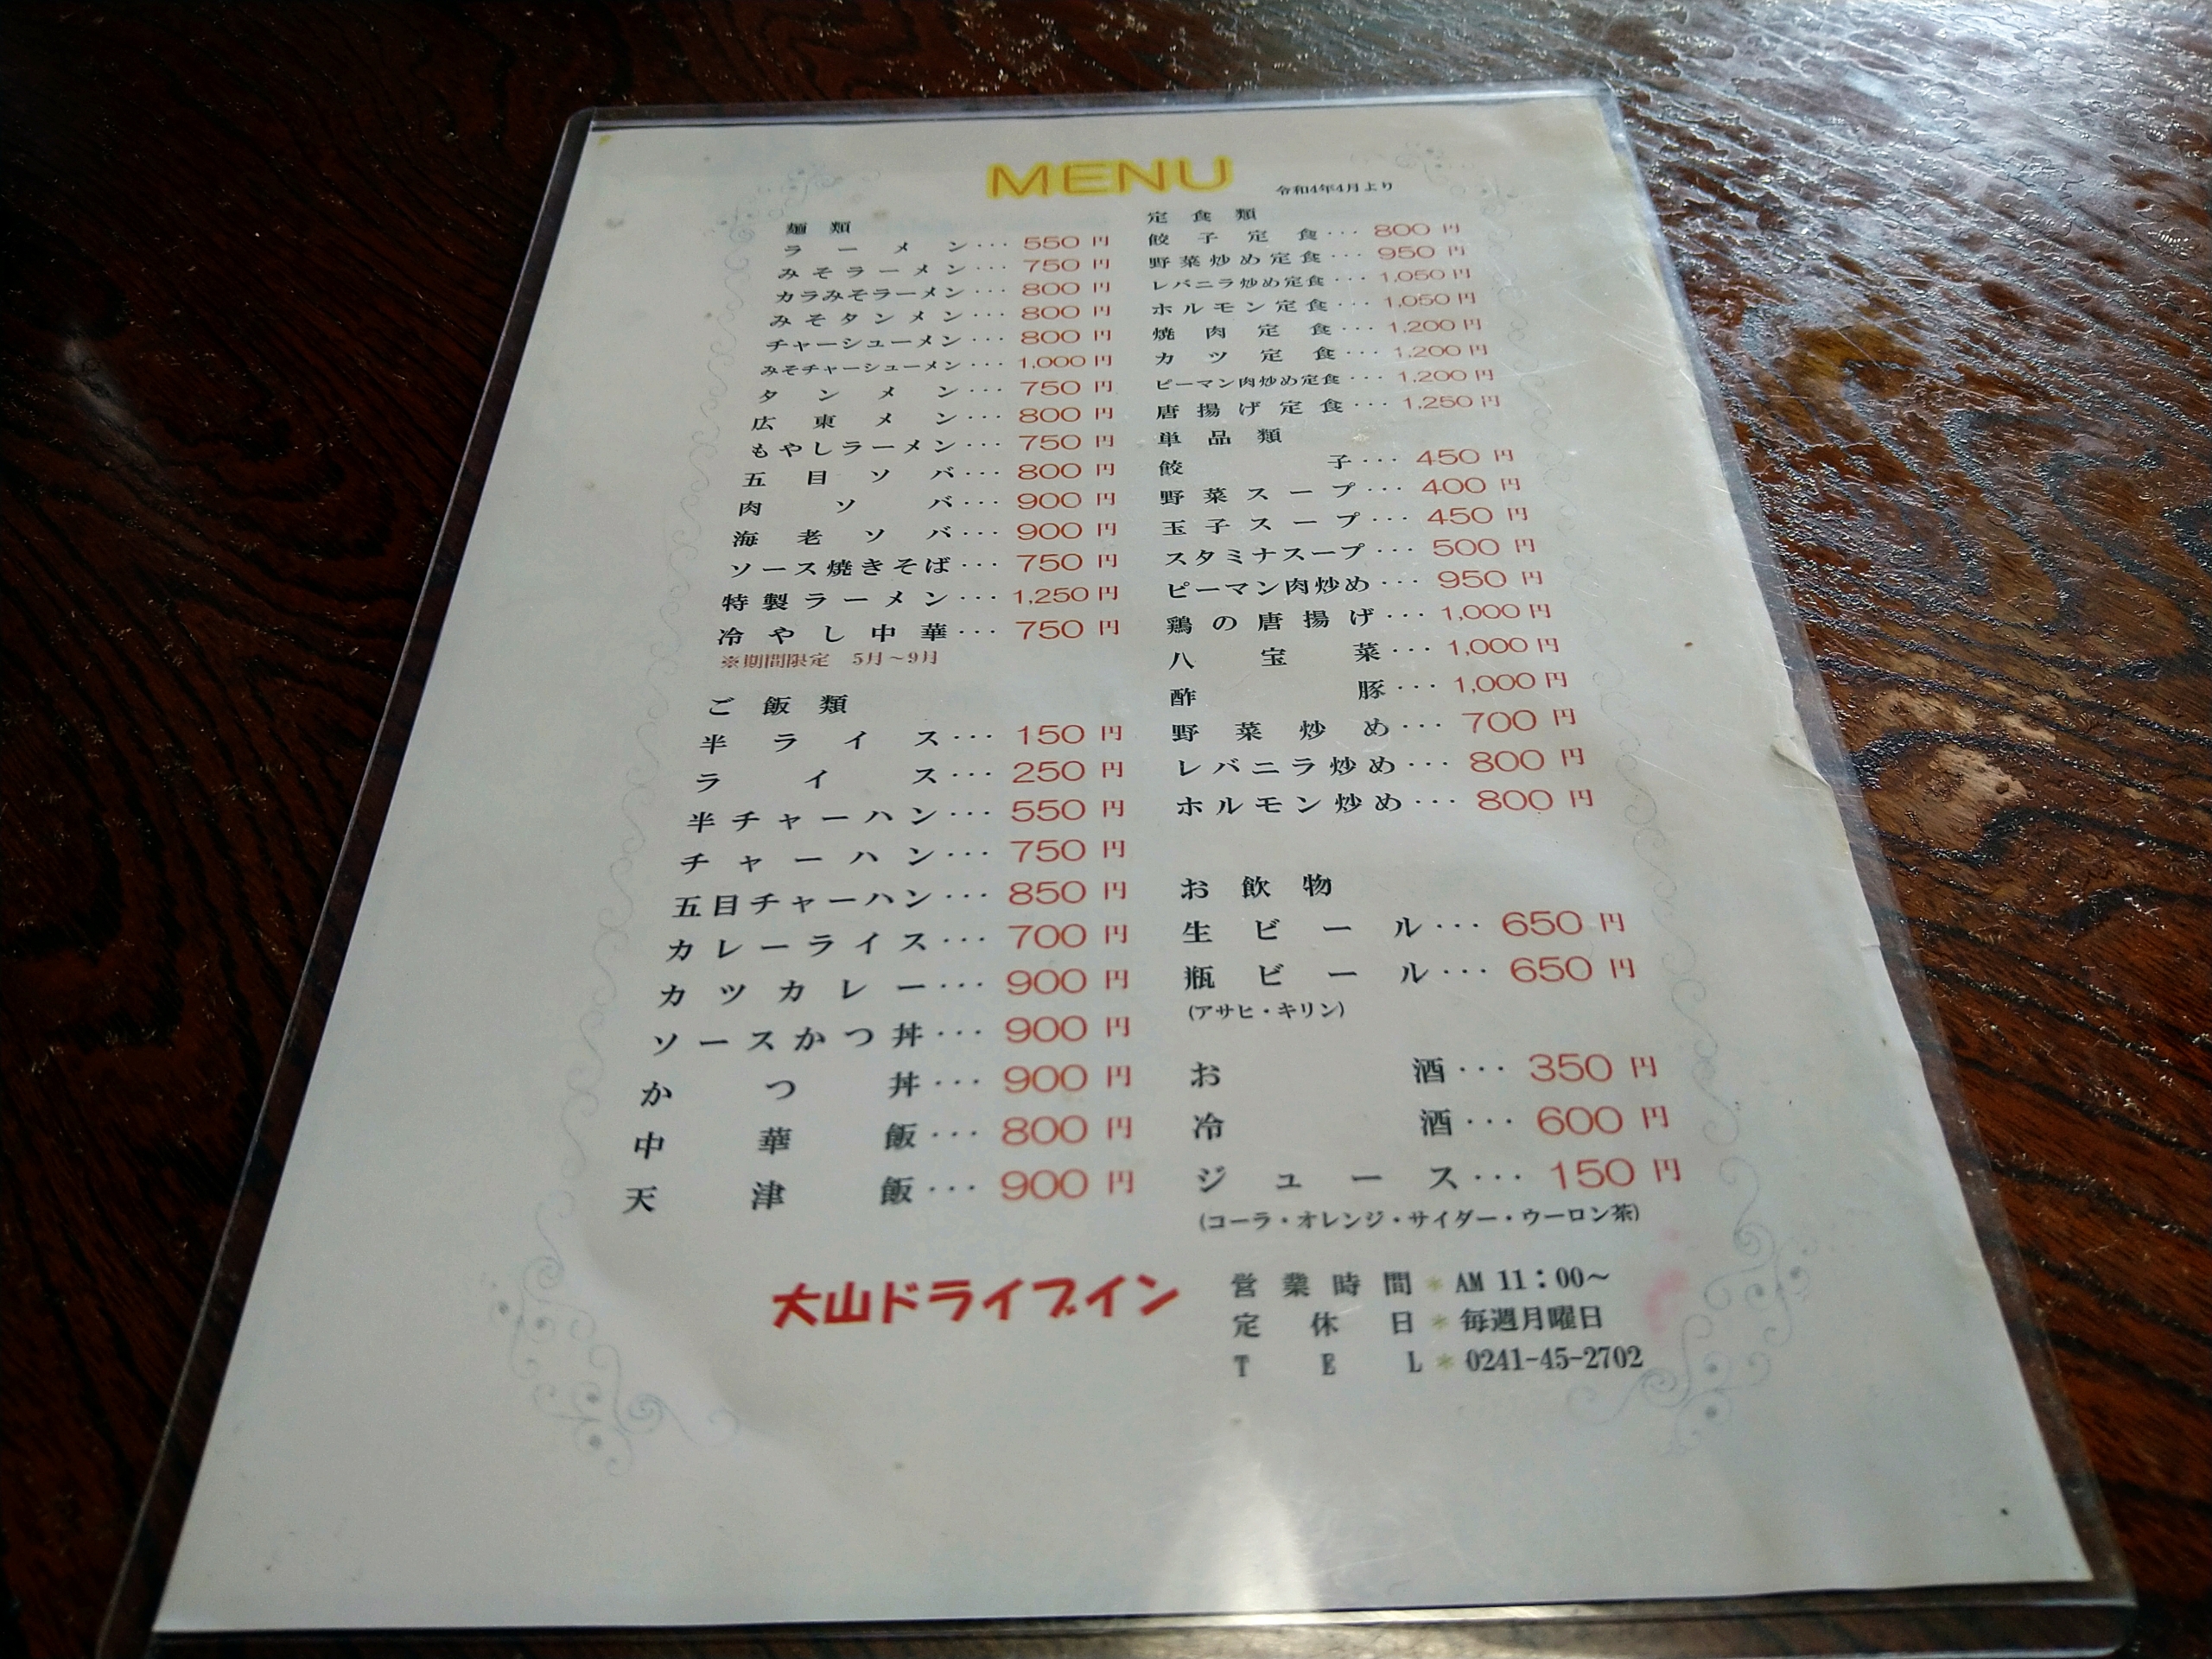 MENU
令和4年4月より
麺類
ラーメン･･･550円
みそラーメン･･･750円
カラみそラーメン･･･800円
みそタンメン･･･800円
チャーシューメン･･･800円
みそチャーシューメン･･･1,000円
タンメン･･･750円
広東メン･･･800円
もやしラーメン･･･750円
五目ソバ･･･800円
肉ソバ･･･900円
海老ソバ･･･900円
ソース焼きそば･･･750円
特製ラーメン･･･1,250円
冷やし中華･･･750円
※期間限定 5月～9月
ご飯類
半ライス･･･150円
ライス･･･250円
半チャーハン･･･550円
チャーハン･･･750円
五目チャーハン･･･850円
カレーライス･･･700円
カツカレー･･･900円
ソースかつ丼･･･900円
かつ丼･･･900円
中華飯･･･800円
天津飯･･･900円
定食類
餃子定食･･･800円
野菜炒め定食･･･950円
レバニラ炒め定食･･･1,050円
ホルモン定食･･･1,050円
焼肉定食･･･1,200円
カツ定食･･･1,200円
ピーマン肉炒め定食･･･1,200円
唐揚げ定食･･･1,250円
単品類
餃子･･･450円
野菜スープ･･･400円
玉子スープ･･･450円
スタミナスープ･･･500円
ピーマン肉炒め･･･950円
鶏の唐揚げ･･･1,000円
八宝菜･･･1,000円
酢豚･･･1,000円
野菜炒め･･･700円
レバニラ炒め･･･800円
ホルモン炒め･･･800円
お飲物
生ビール･･･650円
瓶ビール･･･650円
(アサヒ・キリン)
お酒･･･350円
冷酒･･･600円
ジュース･･･150円
(コーラ・オレンジ・サイダー・ウーロン茶)
大山ドライブイン
営業時間＊AM 11：00～
定休日＊毎週月曜日
TEL＊0241-45-2702